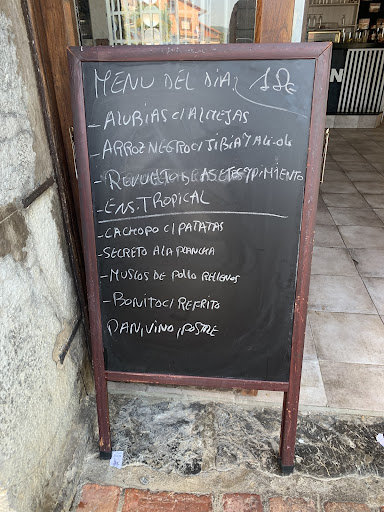 MENU DEL DIA: 18€
- ALUBIAS C/ ALMEJAS
- ARROZ NEGRO C/ SIBIA Y ALI-OLI
- REVUELTO DE Y PIMIENTO
- ENS. TROPICAL
- CACHOPO C/ PATATAS
- SECRETO A LA PLANCHA
- MUSLOS DE POLLO RELLENOS
- BONITO C/ REFRITO
PAN, VINO, POSTRE
N